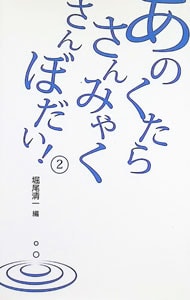 あのくたら
さんみゃく
さんぼだい!
②
堀尾清一 編